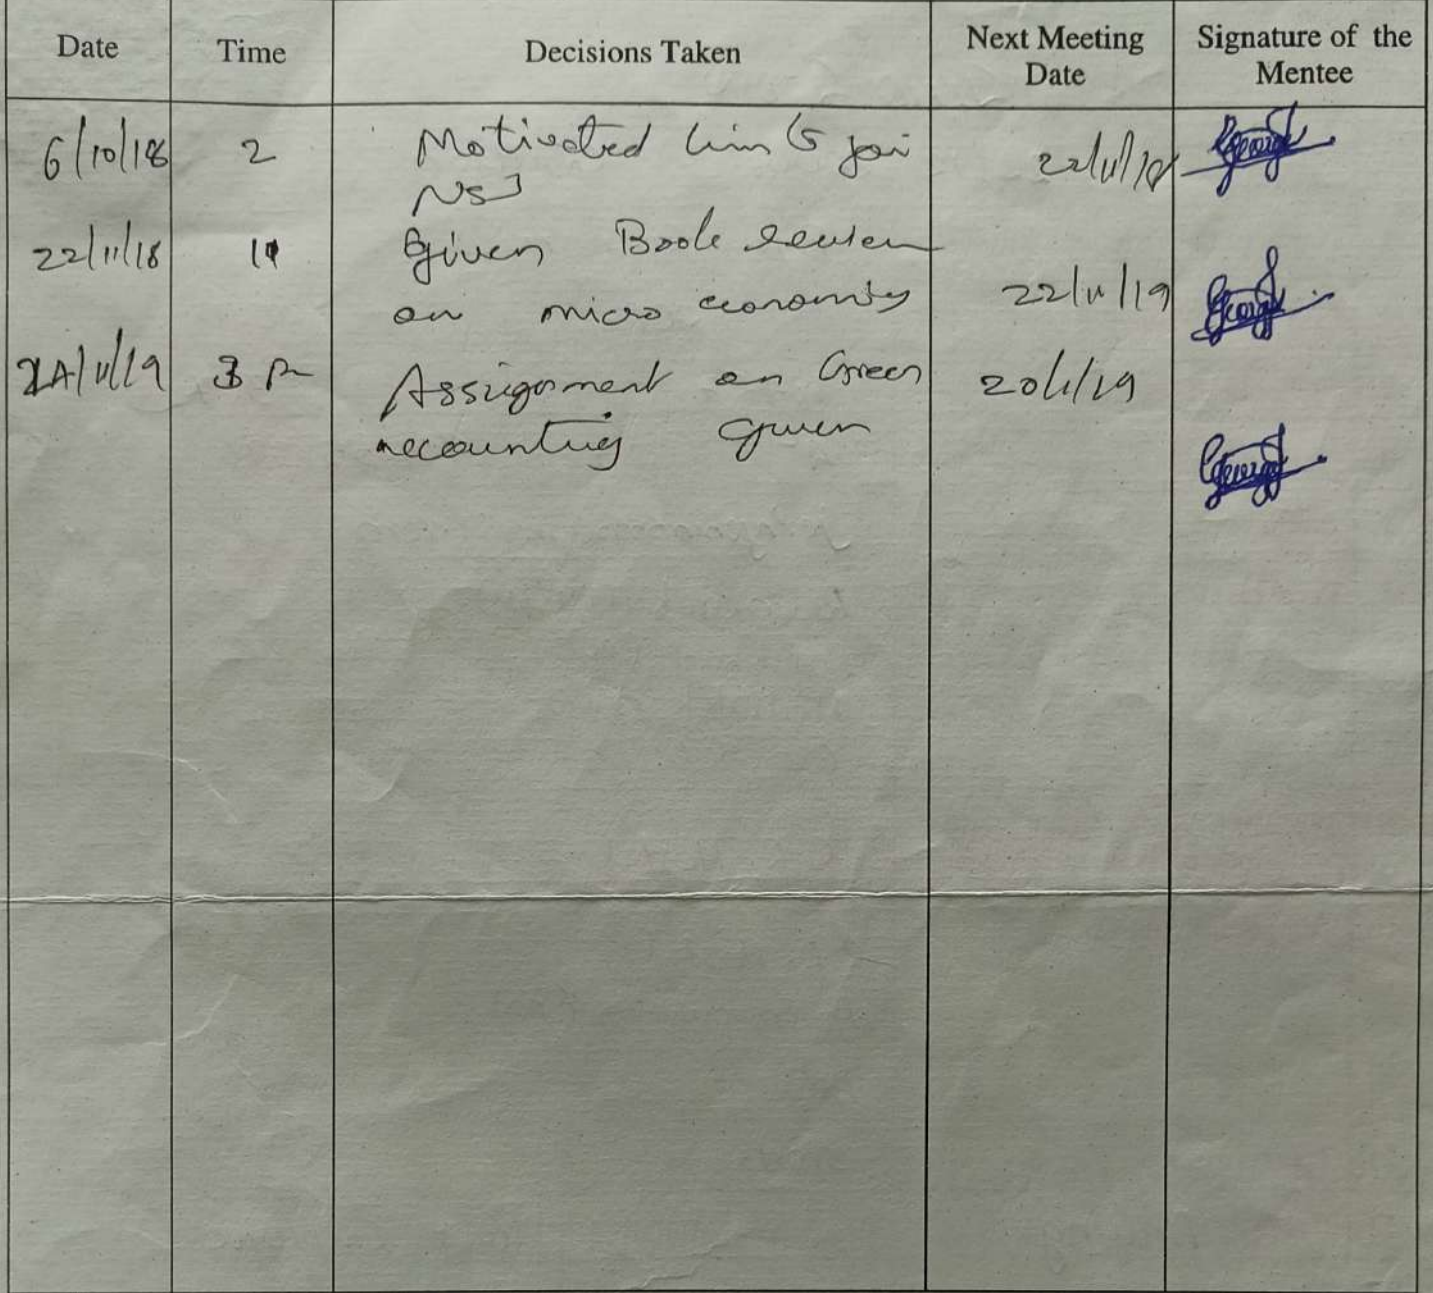 Date Time Decisions Taken Next Meeting Date Signature of the Mentee
6/10/18 2 Motivated him to join 22/11/18
22/11/18 11 Given Book review
on micro economics 22/11/19
3 Pm Assignment on Green
accounting given